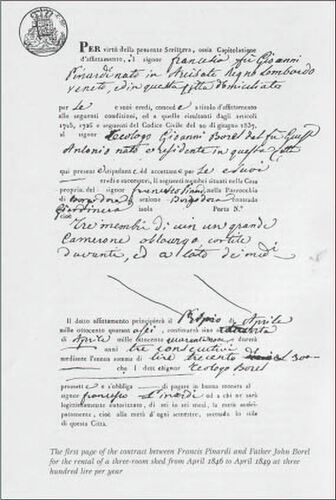 PER virtù della presente Scrittura, ossia Capitolazione
d'affittamento, il signor francesco fu Gioanni
Pinardi nato in Arcisate Regno Lombardo
veneto, ed in questa Città domiciliato
per se e suoi eredi, concede a titolo d'affittamento
alle seguenti condizioni, ed a quelle risultanti dagli articoli
1725, 1726 e seguenti del Codice Civile del 20 giugno 1837,
al signor Teologo Gioanni Borel del fu
Antonio nato e residente in questa Città
qui presente ed accettante per se e suoi
eredi e successori, li seguenti membri situati nella Casa
propria del signor francesco Pinardi nella Parrocchia
di Borgodora cantone Borgodora contrada
Giardiniera isola Porta N.°
cioè
Tre membri di un grande
Camerone cortile
davante, ed a lato
Il detto affittamento principierà il Primo di Aprile
mille ottocento quaranta sei, continuerà sino
di Aprile mille ottocento quarantanove durerà
anni tre consecutivi
mediante l'annua somma di lire trecento 300
che il detto signor Teologo Borel
promette e s'obbliga di pagare in buona moneta al
signor francesco Pinardi od a chi ne sarà
legittimamente autorizzato, di sei in sei mesi, la metà anti-
cipatamente, cioè alla metà d'ogni semestre, secondo lo stile
di questa Città.
The first page of the contract between Francis Pinardi and Father John Borel
for the rental of a three-room shed from April 1846 to April 1849 at three
hundred lire per year